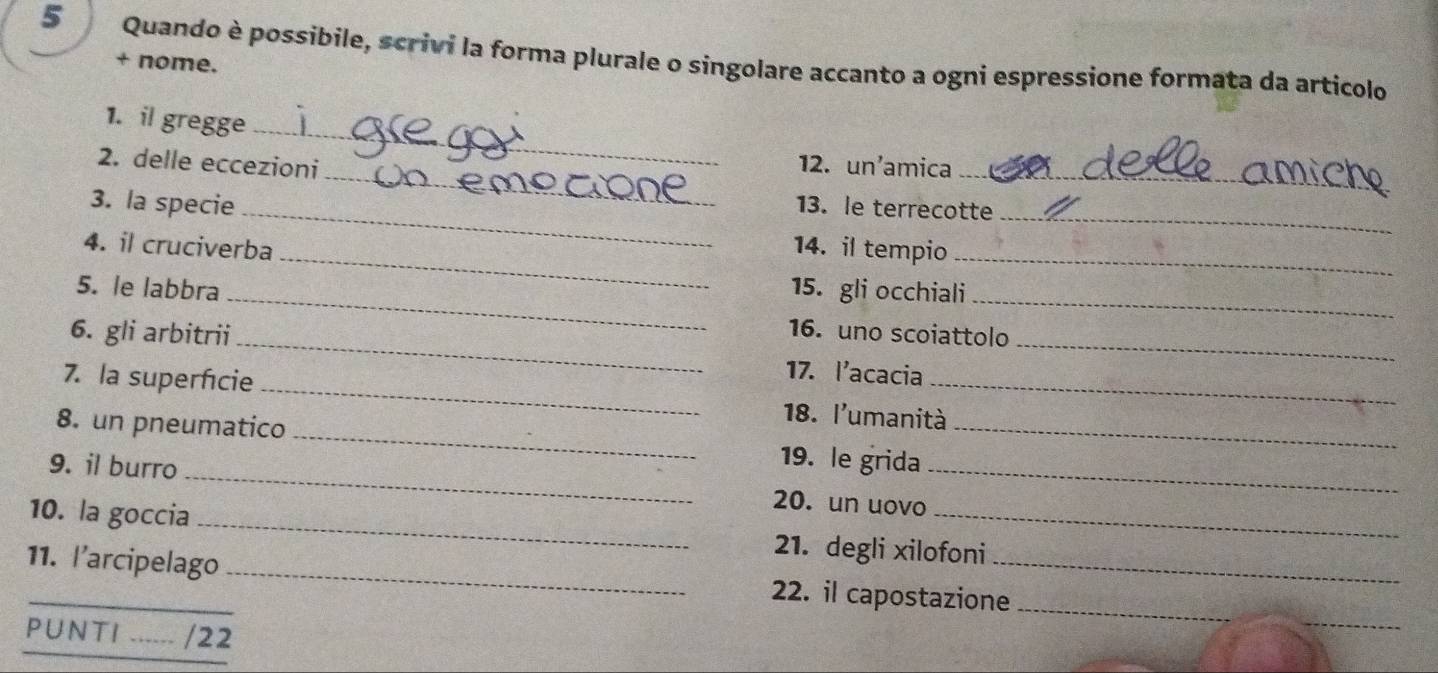 5 Quando è possibile, scrivi la forma plurale o singolare accanto a ogni espressione formata da articolo
+ nome.
1. il gregge i greggi
2. delle eccezioni un emozione
3. la specie
4. il cruciverba
5. le labbra
6. gli arbitrii
7. la superficie
8. un pneumatico
9. il burro
10. la goccia
11. l'arcipelago
12. un'amica delle amiche
13. le terrecotte //
14. il tempio
15. gli occhiali
16. uno scoiattolo
17. l'acacia
18. l'umanità
19. le grida
20. un uovo
21. degli xilofoni
22. il capostazione
PUNTI ...... /22